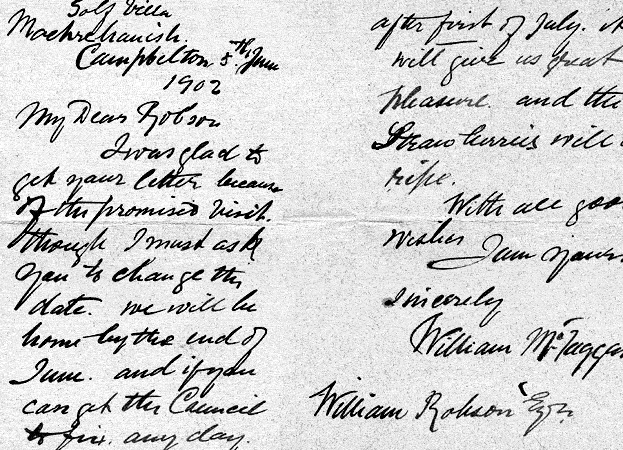 Golf Villa
Machrehanish.
Campbelton 5th June
1902
My Dear Robson
I was glad to
get your letter because
of the promised visit.
though I must ask
you to change the
date. we will be
home by the end of
June. and if you
can get the Council
to fix. any day.
after first of July. it
will give us great
pleasure. and the
Strawberries will
ripe.
With all good
wishes I am yours
sincerely
William McTaggar
William Robson Esqr.